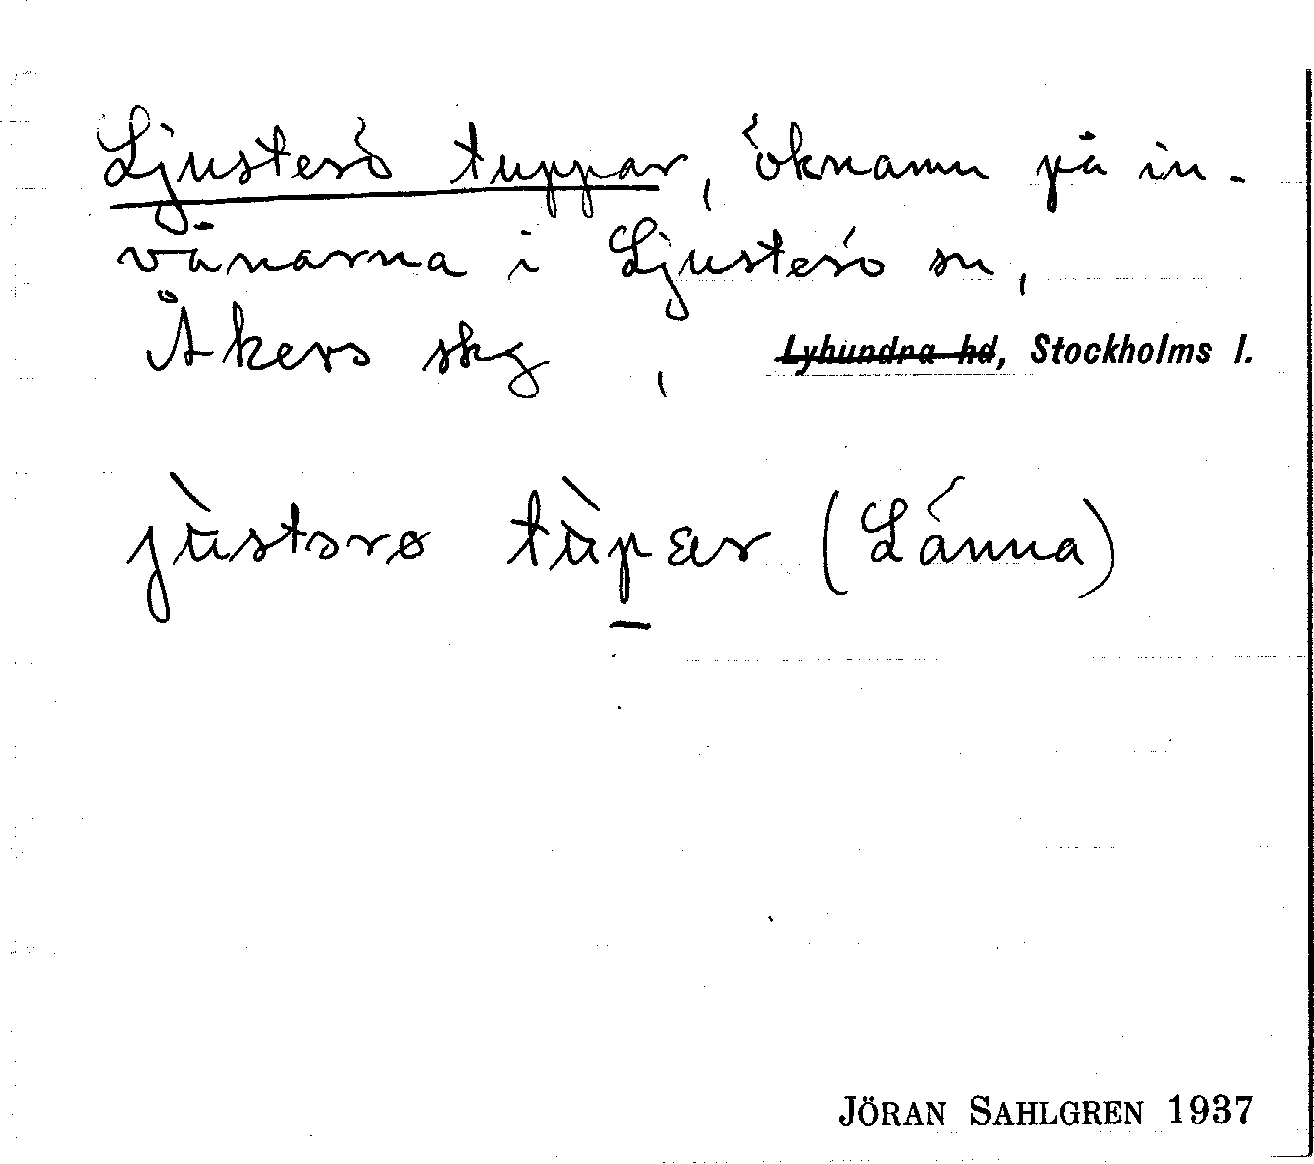 Ljusterö tuppar, öknamn på in-
vånarna i Ljusterö sn,
Åkers skg, Lyhundra hd, Stockholms l.
jùstərø tùp̲ar (Länna)
JÖRAN SAHLGREN 1937